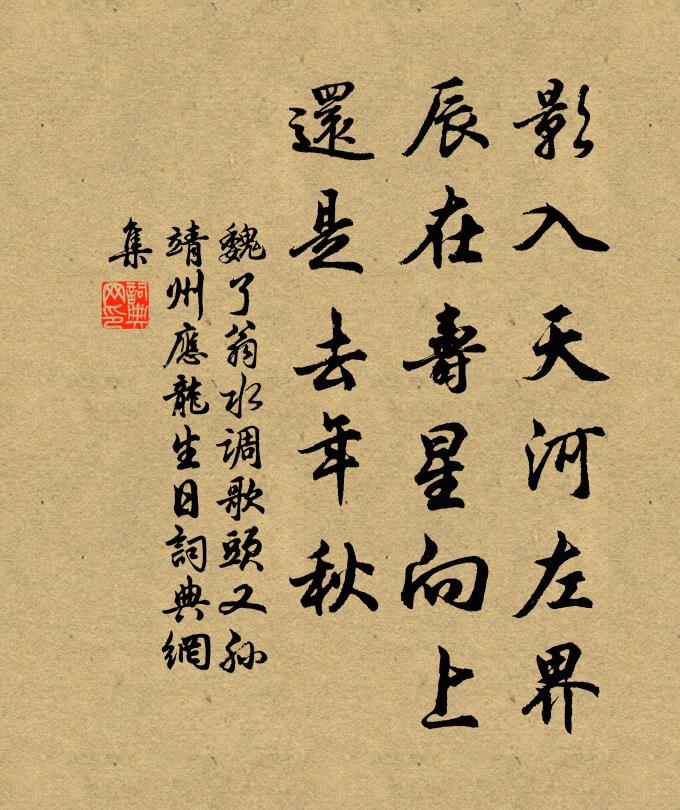 影入天河左界
辰在壽星向上
還是去年秋
魏了翁水调歌頭又孫
靖州應龍生日詞典網
集
詞典
网印